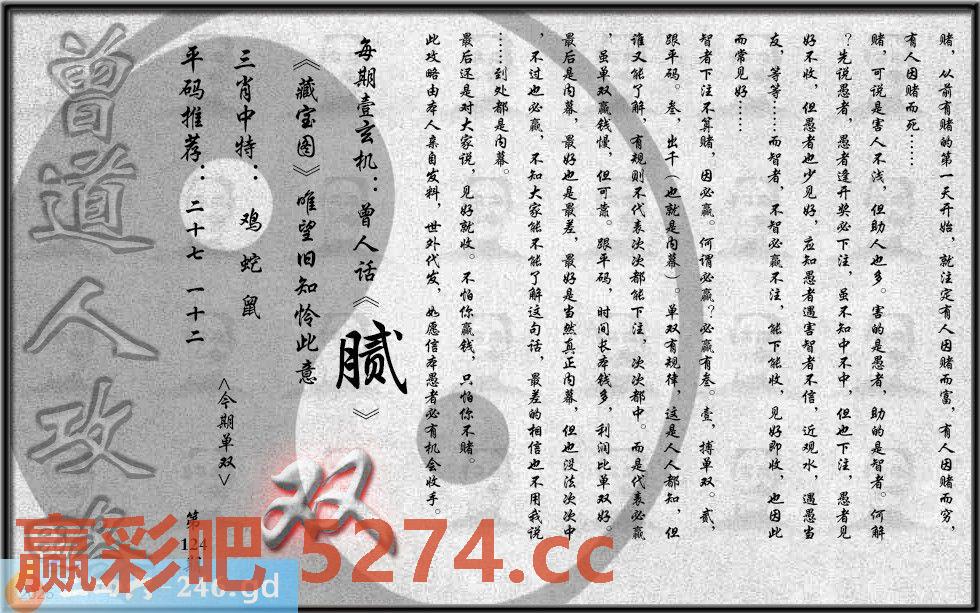 赌，从前有赌的第一天开始，就注定有人因赌而富，有人因赌而穷，
有人因赌而死……
赌，可说是害人不浅，但助人也多。害的是愚者，助的是智者。何解
？先说愚者，愚者逢开奖必下注，虽不知中不中，但也下注，愚者见
好不收，但愚者也少见好，应知愚者遇害智者不信，近观水，遇愚当
友，等等……而智者，不智必赢不注，能下能收，见好即收，也因此
而常见好……
智者下注不算赌，因必赢。何谓必赢？必赢有叁。壹，搏单双。贰，
跟平码。叁，出千（也就是内幕）。单双有规律，这是人人都知，但
谁又能了解，有规则不代表次次都能下注，次次都中。而是代表必赢
，虽单双赢钱慢，但可靠。跟平码，时间长本钱多，利润比单双好。
最后是内幕，最好也是最差，最好是当然真正内幕，但也没法次次中
，不过也必赢，不知大家能不能了解这句话，最差的相信也不用我说
……到处都是内幕。
最后还是对大家说，见好就收。不怕你赢钱，只怕你不赌。
此攻略由本人亲自发料，世外代发，如愿信本愚者必有机会收手。
每期壹玄机：曾人话《腻》
《藏宝图》唯望旧知怜此意
三肖中特：鸡 蛇 鼠
平码推荐：二十七 一十二
<今期单双>
双
第124期
曾道人攻
赢彩吧 5274.cc
-246.gd